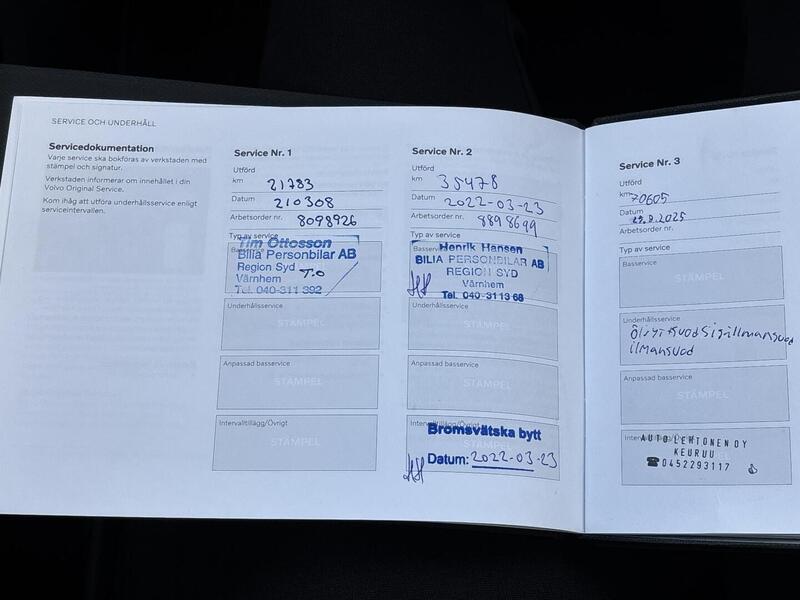 SERVICE OCH UNDERHÅLL
Servicedokumentation
Varje service ska bokföras av verkstaden med
stämpel och signatur.
Verkstaden informerar om innehållet i din
Volvo Original Service.
Kom ihåg att utföra underhållsservice enligt
serviceintervallen.
Service Nr. 1
Utförd
km 21783
Datum 210308
Arbetsorder nr. 8098926
Typ av service
Tim Ottosson
Bilia Personbilar AB
Region Syd T.O
Värnhem
Tel. 040-311 392
Underhållsservice
STÄMPEL
Anpassad basservice
STÄMPEL
Intervalltillägg/Övrigt
STÄMPEL
Service Nr. 2
Utförd
km 35478
Datum 2022-03-23
Arbetsorder nr. 8898699
Typ av service
Basservice
Henrik Hansen
BILIA PERSONBILAR AB
REGION SYD
Värnhem
HH Tel. 040-311 3 68
Underhållsservice
STÄMPEL
Anpassad basservice
STÄMPEL
Intervalltillägg/Övrigt
Bromsvätska bytt
HH Datum: 2022-03-23
Service Nr. 3
Utförd
km 70605
Datum
Arbetsorder nr.
Typ av service
Basservice
STÄMPEL
Underhållsservice
ilmansuod
Anpassad basservice
STÄMPEL
AUTO LEHTONEN OY
KEURUU
☎0452293117